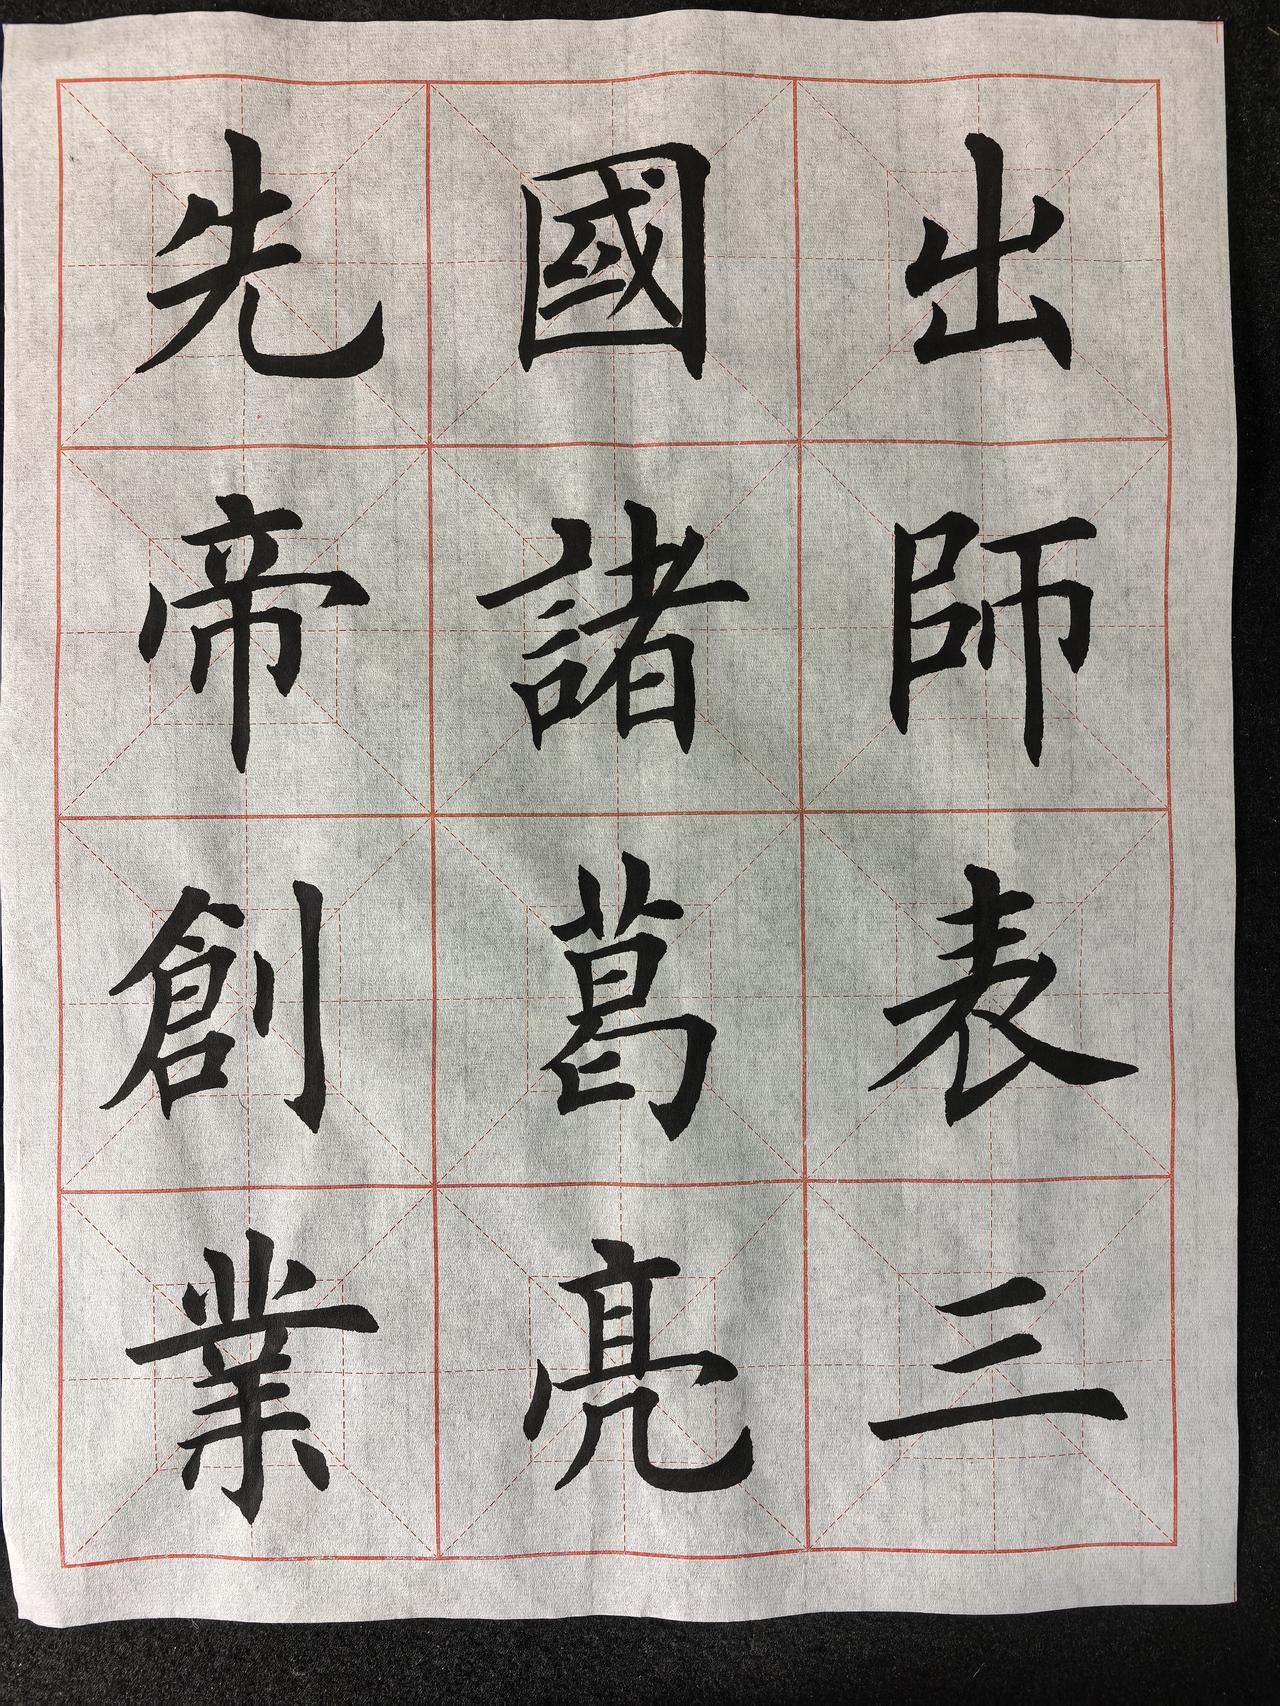 出師表三
國諸葛亮
先帝創業